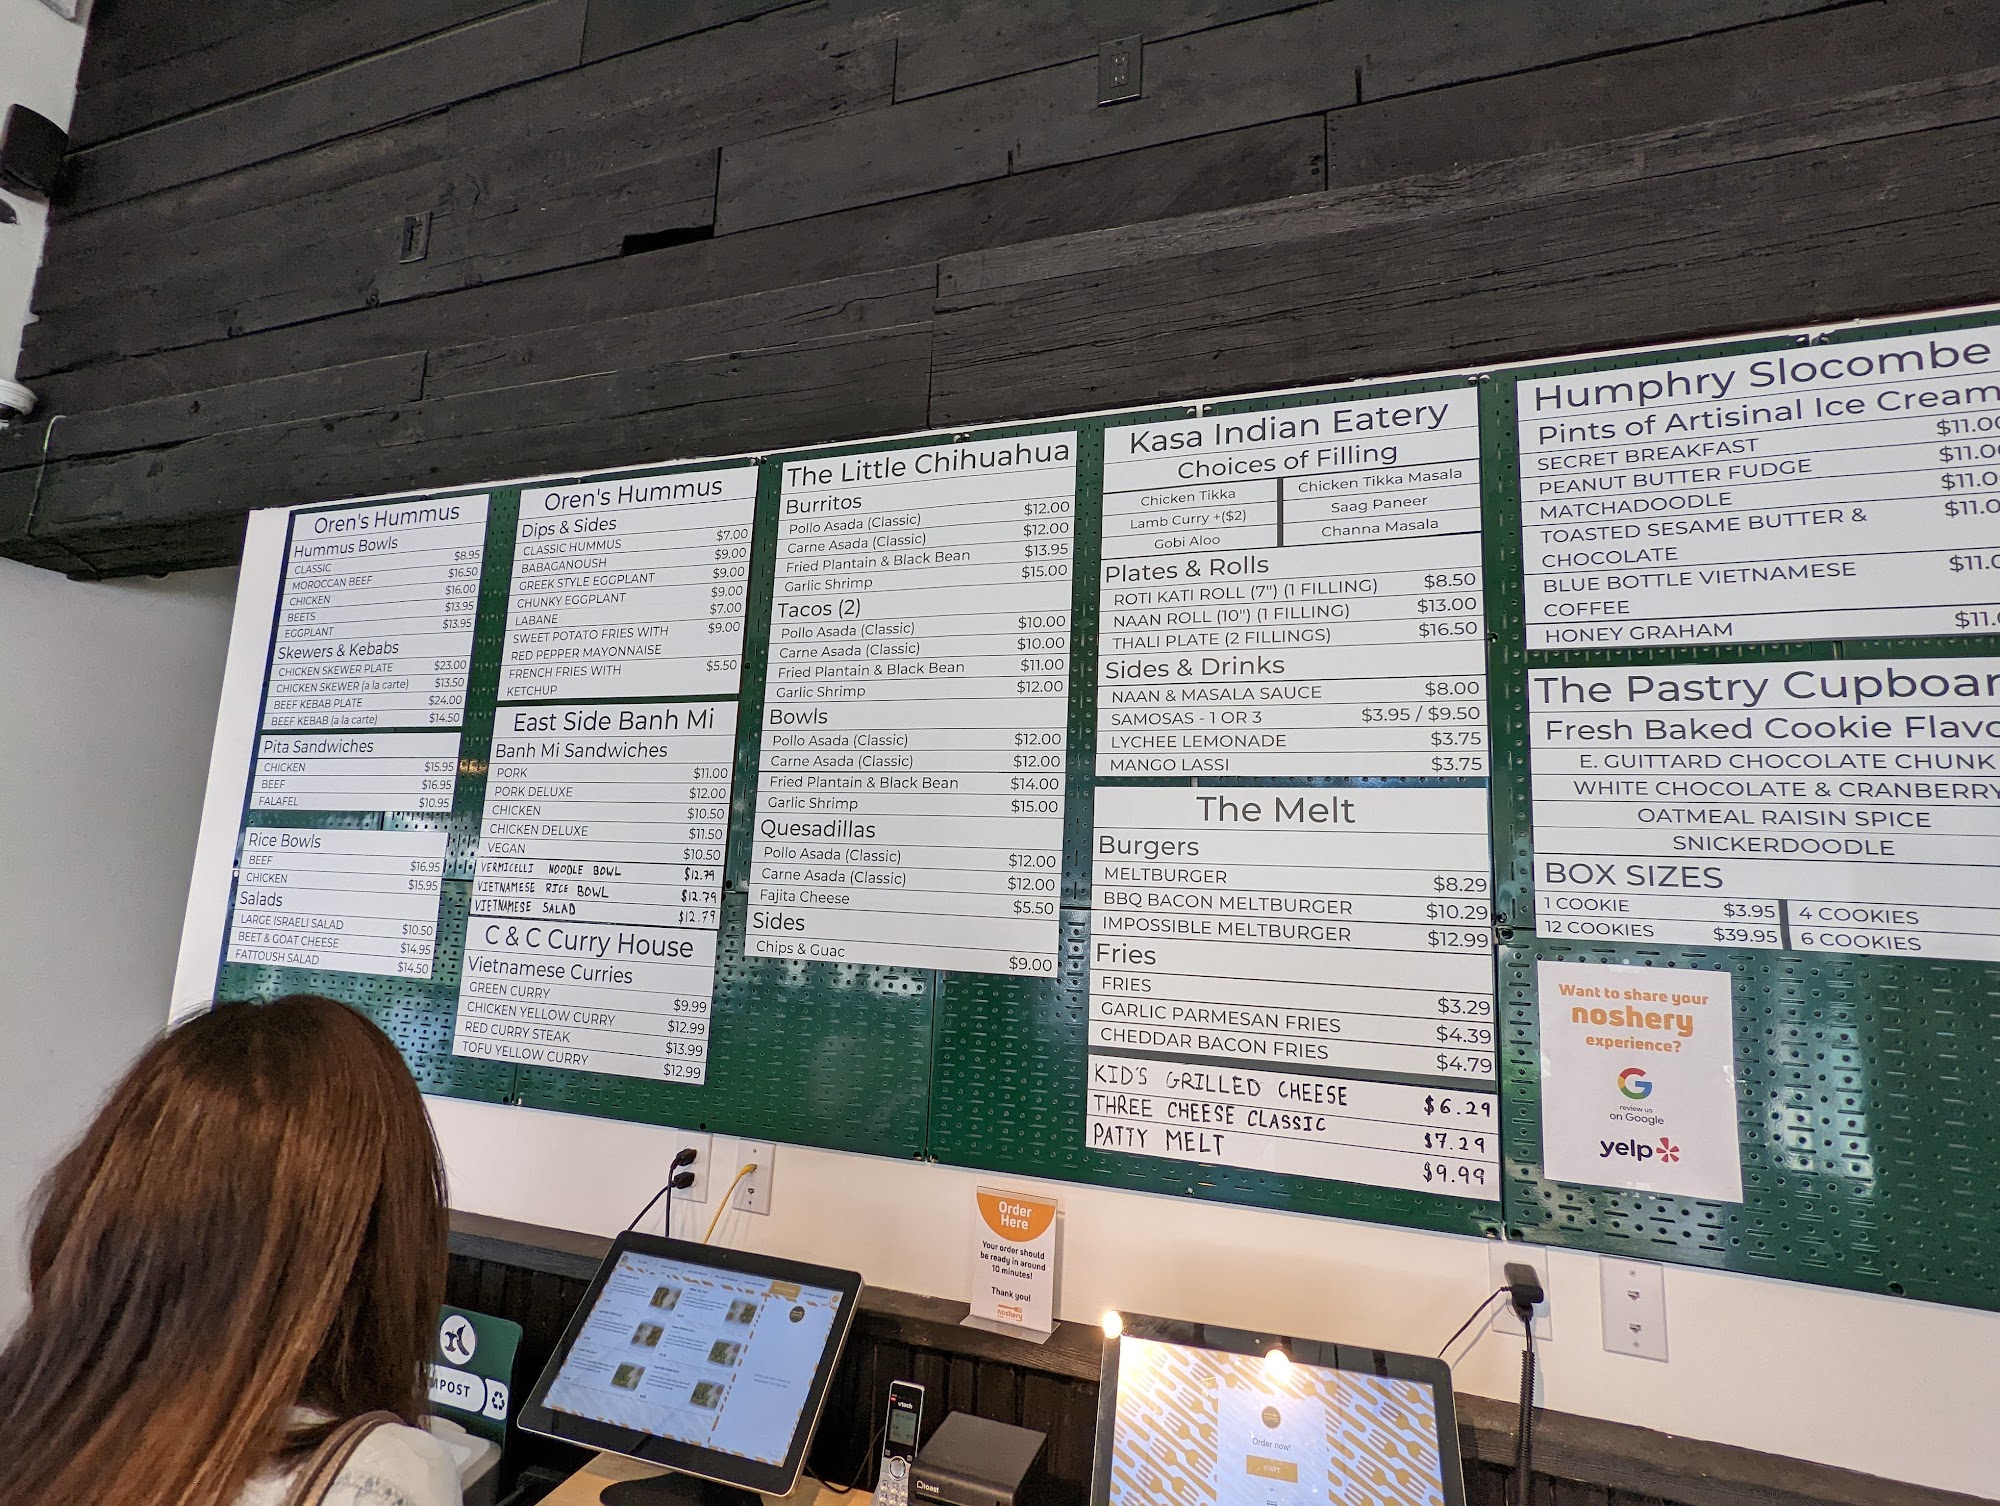 Oren's Hummus
Hummus Bowls
CLASSIC $8.95
MOROCCAN BEEF $16.50
CHICKEN $16.00
BEETS $13.95
EGGPLANT $13.95
Skewers & Kebabs
CHICKEN SKEWER PLATE $23.00
CHICKEN SKEWER (a la carte) $13.50
BEEF KEBAB PLATE $24.00
BEEF KEBAB (a la carte) $14.50
Pita Sandwiches
CHICKEN $15.95
BEEF $16.95
FALAFEL $10.95
Rice Bowls
BEEF $16.95
CHICKEN $15.95
Salads
LARGE ISRAELI SALAD $10.50
BEET & GOAT CHEESE $14.95
FATTOUSH SALAD $14.50
Oren's Hummus
Dips & Sides
CLASSIC HUMMUS $7.00
BABAGANOUSH $9.00
GREEK STYLE EGGPLANT $9.00
CHUNKY EGGPLANT $9.00
LABANE $7.00
SWEET POTATO FRIES WITH $9.00
RED PEPPER MAYONNAISE
FRENCH FRIES WITH $5.50
KETCHUP
East Side Banh Mi
Banh Mi Sandwiches
PORK $11.00
PORK DELUXE $12.00
CHICKEN $10.50
CHICKEN DELUXE $11.50
VEGAN $10.50
VERMICELLI NOODLE BOWL $12.79
VIETNAMESE RICE BOWL $12.79
VIETNAMESE SALAD $12.79
C & C Curry House
Vietnamese Curries
GREEN CURRY $9.99
CHICKEN YELLOW CURRY $12.99
RED CURRY STEAK $13.99
TOFU YELLOW CURRY $12.99
The Little Chihuahua
Burritos
Pollo Asada (Classic) $12.00
Carne Asada (Classic) $12.00
Fried Plantain & Black Bean $13.95
Garlic Shrimp $15.00
Tacos (2)
Pollo Asada (Classic) $10.00
Carne Asada (Classic) $10.00
Fried Plantain & Black Bean $11.00
Garlic Shrimp $12.00
Bowls
Pollo Asada (Classic) $12.00
Carne Asada (Classic) $12.00
Fried Plantain & Black Bean $14.00
Garlic Shrimp $15.00
Quesadillas
Pollo Asada (Classic) $12.00
Carne Asada (Classic) $12.00
Fajita Cheese $5.50
Sides
Chips & Guac $9.00
Kasa Indian Eatery
Choices of Filling
Chicken Tikka Chicken Tikka Masala
Lamb Curry +($2) Saag Paneer
Gobi Aloo Channa Masala
Plates & Rolls
ROTI KATI ROLL (7") (1 FILLING) $8.50
NAAN ROLL (10") (1 FILLING) $13.00
THALI PLATE (2 FILLINGS) $16.50
Sides & Drinks
NAAN & MASALA SAUCE $8.00
SAMOSAS - 1 OR 3 $3.95 / $9.50
LYCHEE LEMONADE $3.75
MANGO LASSI $3.75
The Melt
Burgers
MELTBURGER $8.29
BBQ BACON MELTBURGER $10.29
IMPOSSIBLE MELTBURGER $12.99
Fries
FRIES $3.29
GARLIC PARMESAN FRIES $4.39
CHEDDAR BACON FRIES $4.79
KID'S GRILLED CHEESE $6.29
THREE CHEESE CLASSIC $7.29
PATTY MELT $9.99
Humphry Slocombe
Pints of Artisinal Ice Cream
SECRET BREAKFAST $11.00
PEANUT BUTTER FUDGE $11.0
MATCHADOODLE $11.0
TOASTED SESAME BUTTER & $11.0
CHOCOLATE
BLUE BOTTLE VIETNAMESE $11.0
COFFEE
HONEY GRAHAM $11.
The Pastry Cupboar
Fresh Baked Cookie Flavo
E. GUITTARD CHOCOLATE CHUNK
WHITE CHOCOLATE & CRANBERRY
OATMEAL RAISIN SPICE
SNICKERDOODLE
BOX SIZES
1 COOKIE $3.95 4 COOKIES
12 COOKIES $39.95 6 COOKIES
Want to share your
noshery
experience?
G
review us
on Google
yelp
Order
Here
Your order should
be ready in around
10 minutes!
Thank you!
noshery
MPOST
vtech
toast
Order now!
START